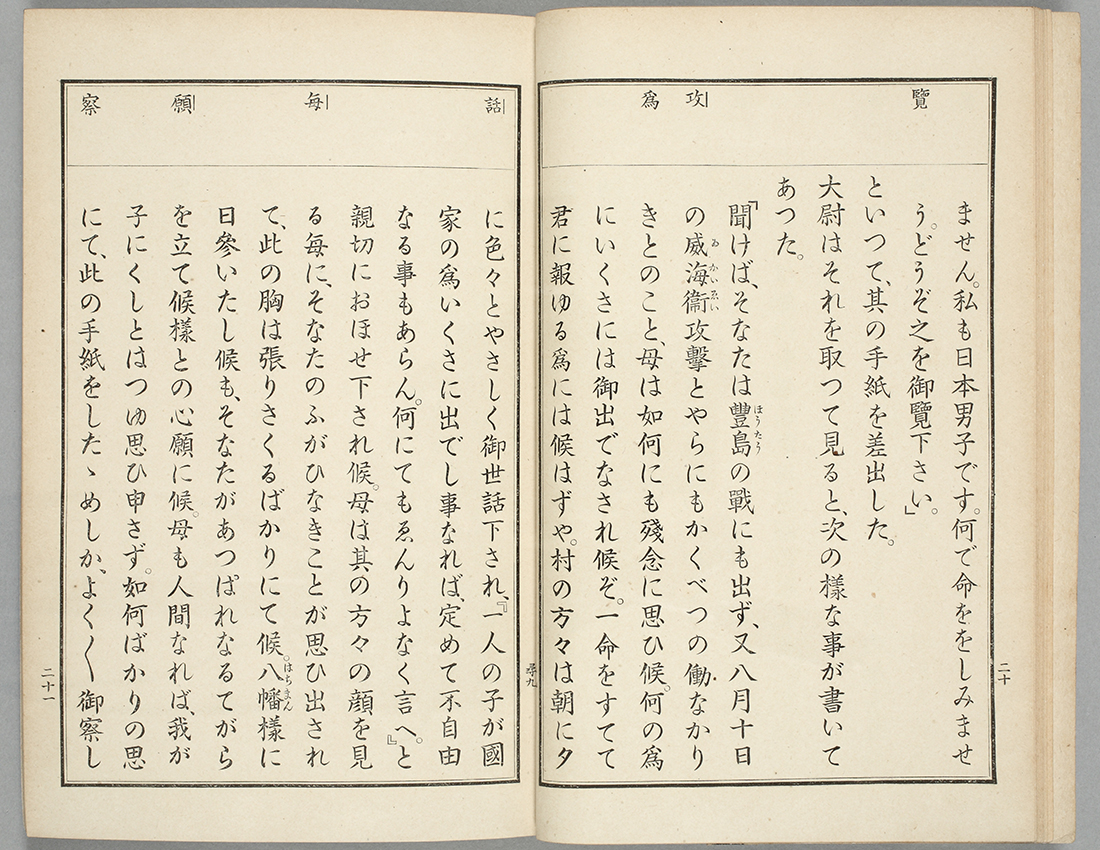 覽
攻
爲
ません。私も日本男子です。何で命ををしみませ
う。どうぞ之を御覽下さい。」
といつて、其の手紙を差出した。
大尉はそれを取つて見ると、次の樣な事が書いて
あつた。
「聞けば、そなたは豐島の戰にも出ず、又八月十日
ほうたう
の威海衞攻擊とやらにもかくべつの働なかり
ゐかいゑい
きとのこと、母は如何にも殘念に思ひ候。何の爲
にいくさには御出でなされ候ぞ。一命をすてて
君に報ゆる爲には候はずや。村の方々は朝に夕
二十
尋九
話
每
願
察
に色々とやさしく御世話下され、『一人の子が國
家の爲いくさに出でし事なれば、定めて不自由
なる事もあらん。何にてもゑんりよなく言へ。』と
親切におほせ下され候。母は其の方々の顏を見
る每に、そなたのふがひなきことが思ひ出され
て、此の胸は張りさくるばかりにて候。八幡樣に
はちまん
日參いたし候も、そなたがあつぱれなるてがら
を立て候樣との心願に候。母も人間なれば、我が
子にくしとはつゆ思ひ申さず。如何ばかりの思
にて、此の手紙をしたゝめしか、よく〱御察し
二十一